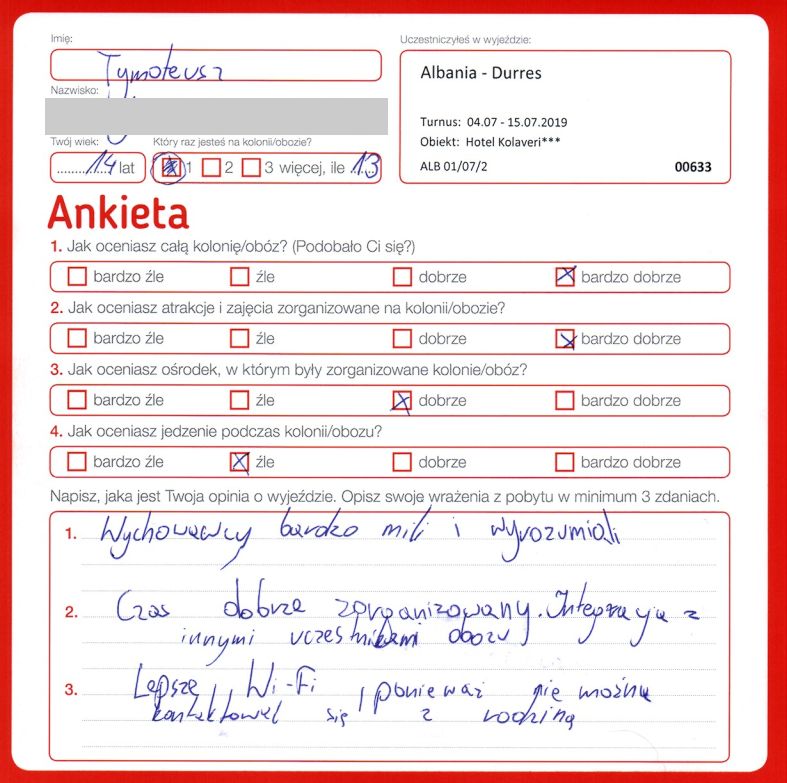 Imię:
Tymoteusz
Nazwisko:
Twój wiek:
14 lat
Który raz jesteś na kolonii/obozie?
1 2 3 więcej, ile 13
Uczestniczyłeś w wyjeździe:
Albania - Durres
Turnus: 04.07 - 15.07.2019
Obiekt: Hotel Kolaveri***
ALB 01/07/2 00633
Ankieta
1. Jak oceniasz całą kolonię/obóz? (Podobało Ci się?)
bardzo źle źle dobrze bardzo dobrze
2. Jak oceniasz atrakcje i zajęcia zorganizowane na kolonii/obozie?
bardzo źle źle dobrze bardzo dobrze
3. Jak oceniasz ośrodek, w którym były zorganizowane kolonie/obóz?
bardzo źle źle dobrze bardzo dobrze
4. Jak oceniasz jedzenie podczas kolonii/obozu?
bardzo źle źle dobrze bardzo dobrze
Napisz, jaka jest Twoja opinia o wyjeździe. Opisz swoje wrażenia z pobytu w minimum 3 zdaniach.
1. Wychowawcy bardzo mili i wyrozumiali
2. Czas dobrze zorganizowany. Integracja z
innymi uczestnikami obozu
3. Lepsze Wi-Fi, ponieważ nie można
kontaktować się z rodziną